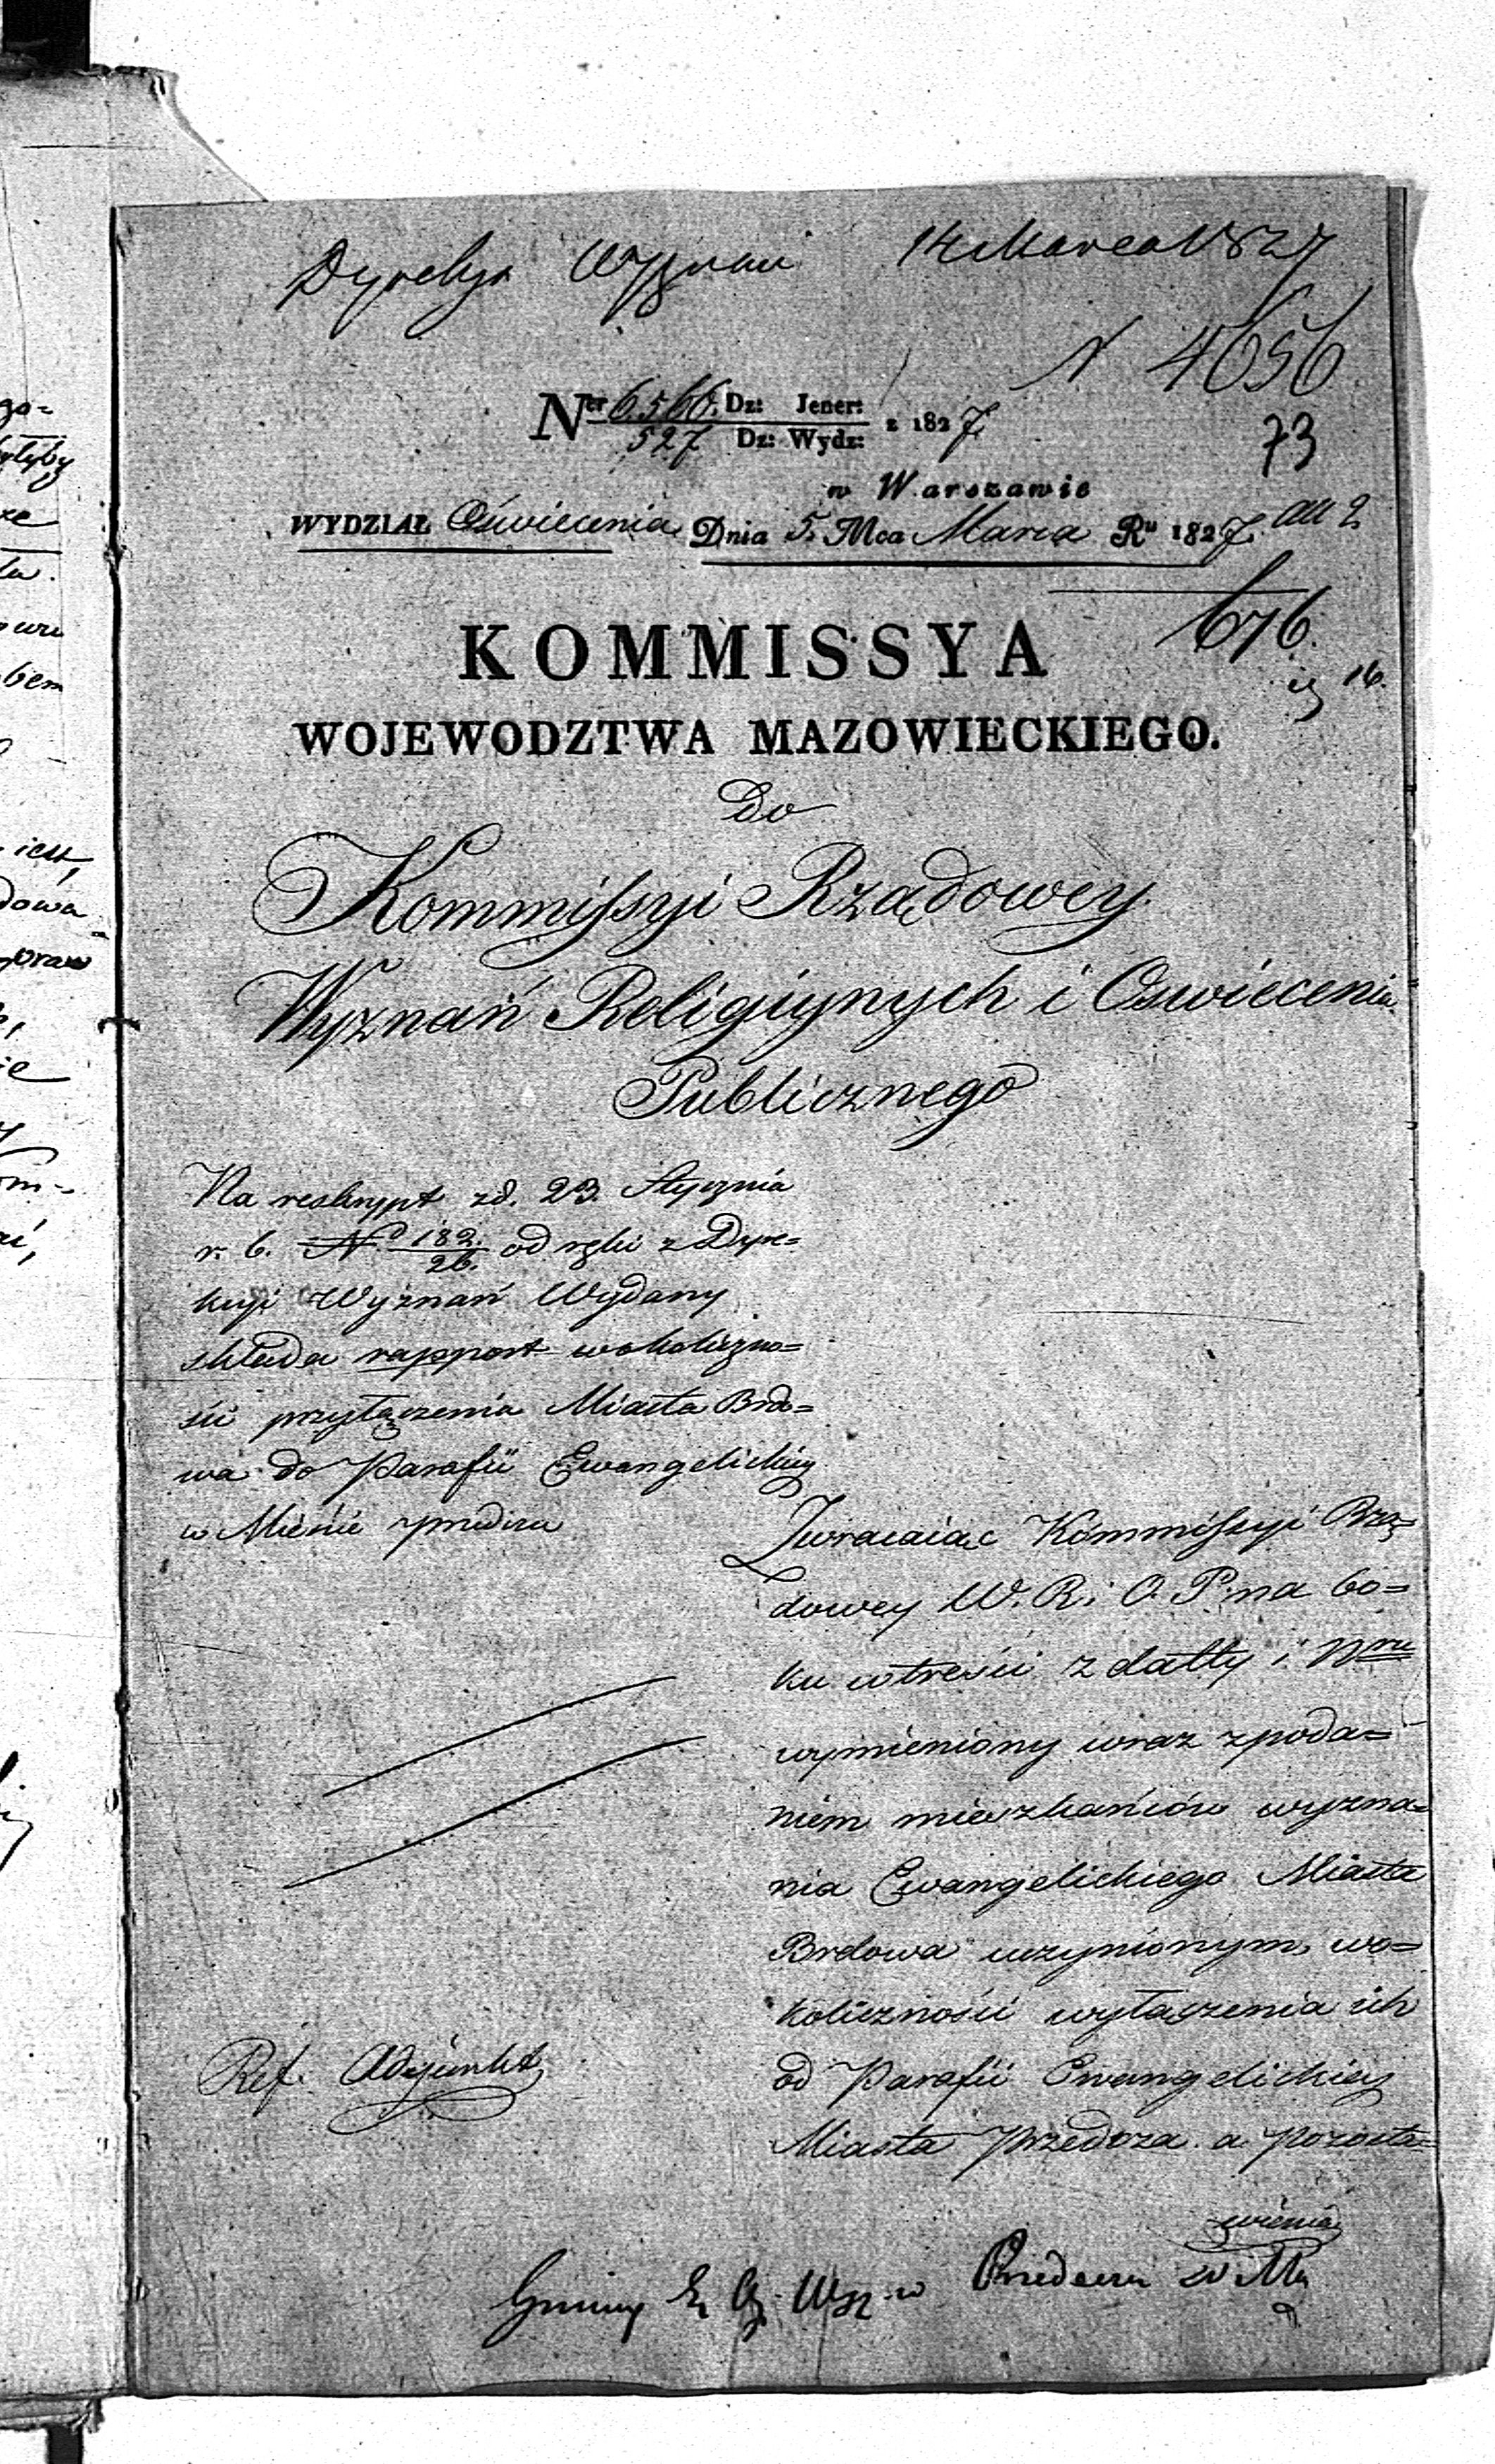 Dyrekcya Wyznań 14 Marca 1827
N 4656
Nter 6,566. Dz: Jener:
527 Dz: Wydz: z 1827.
73
w Warszawie
WYDZIAŁ Oświecenia Dnia 5. Mca Marca Ru 1827.
676.
16.
KOMMISSYA
WOJEWODZTWA MAZOWIECKIEGO.
Do
Kommissyi Rządowey
Wyznań Religiynych i Oswiecenia
Publicznego
Na reskrypt zd. 23. Stycznia
r. b. No 182./26. od ręki z Dyre=
kcyi Wyznań Wydany
składa rapport wokoliczno=
ści przyłączenia Miasta Brdo=
wa do Parafii Ewangelickiey
w
Zwracaiąc Kommissyi Rzą=
dowey W. R. i O. P. na bo=
ku wtreści z datty i Nru
wymieniony wraz zpoda=
niem mieszkańców wyzna=
nia Ewangelickiego Miasta
Brdowa uczynionym, wo=
koliczności wyłączenia ich
od Parafii Ewangelickiey
Miasta Przedcza a pozosta=
wienia
Ref. Adjunkt
Gminy